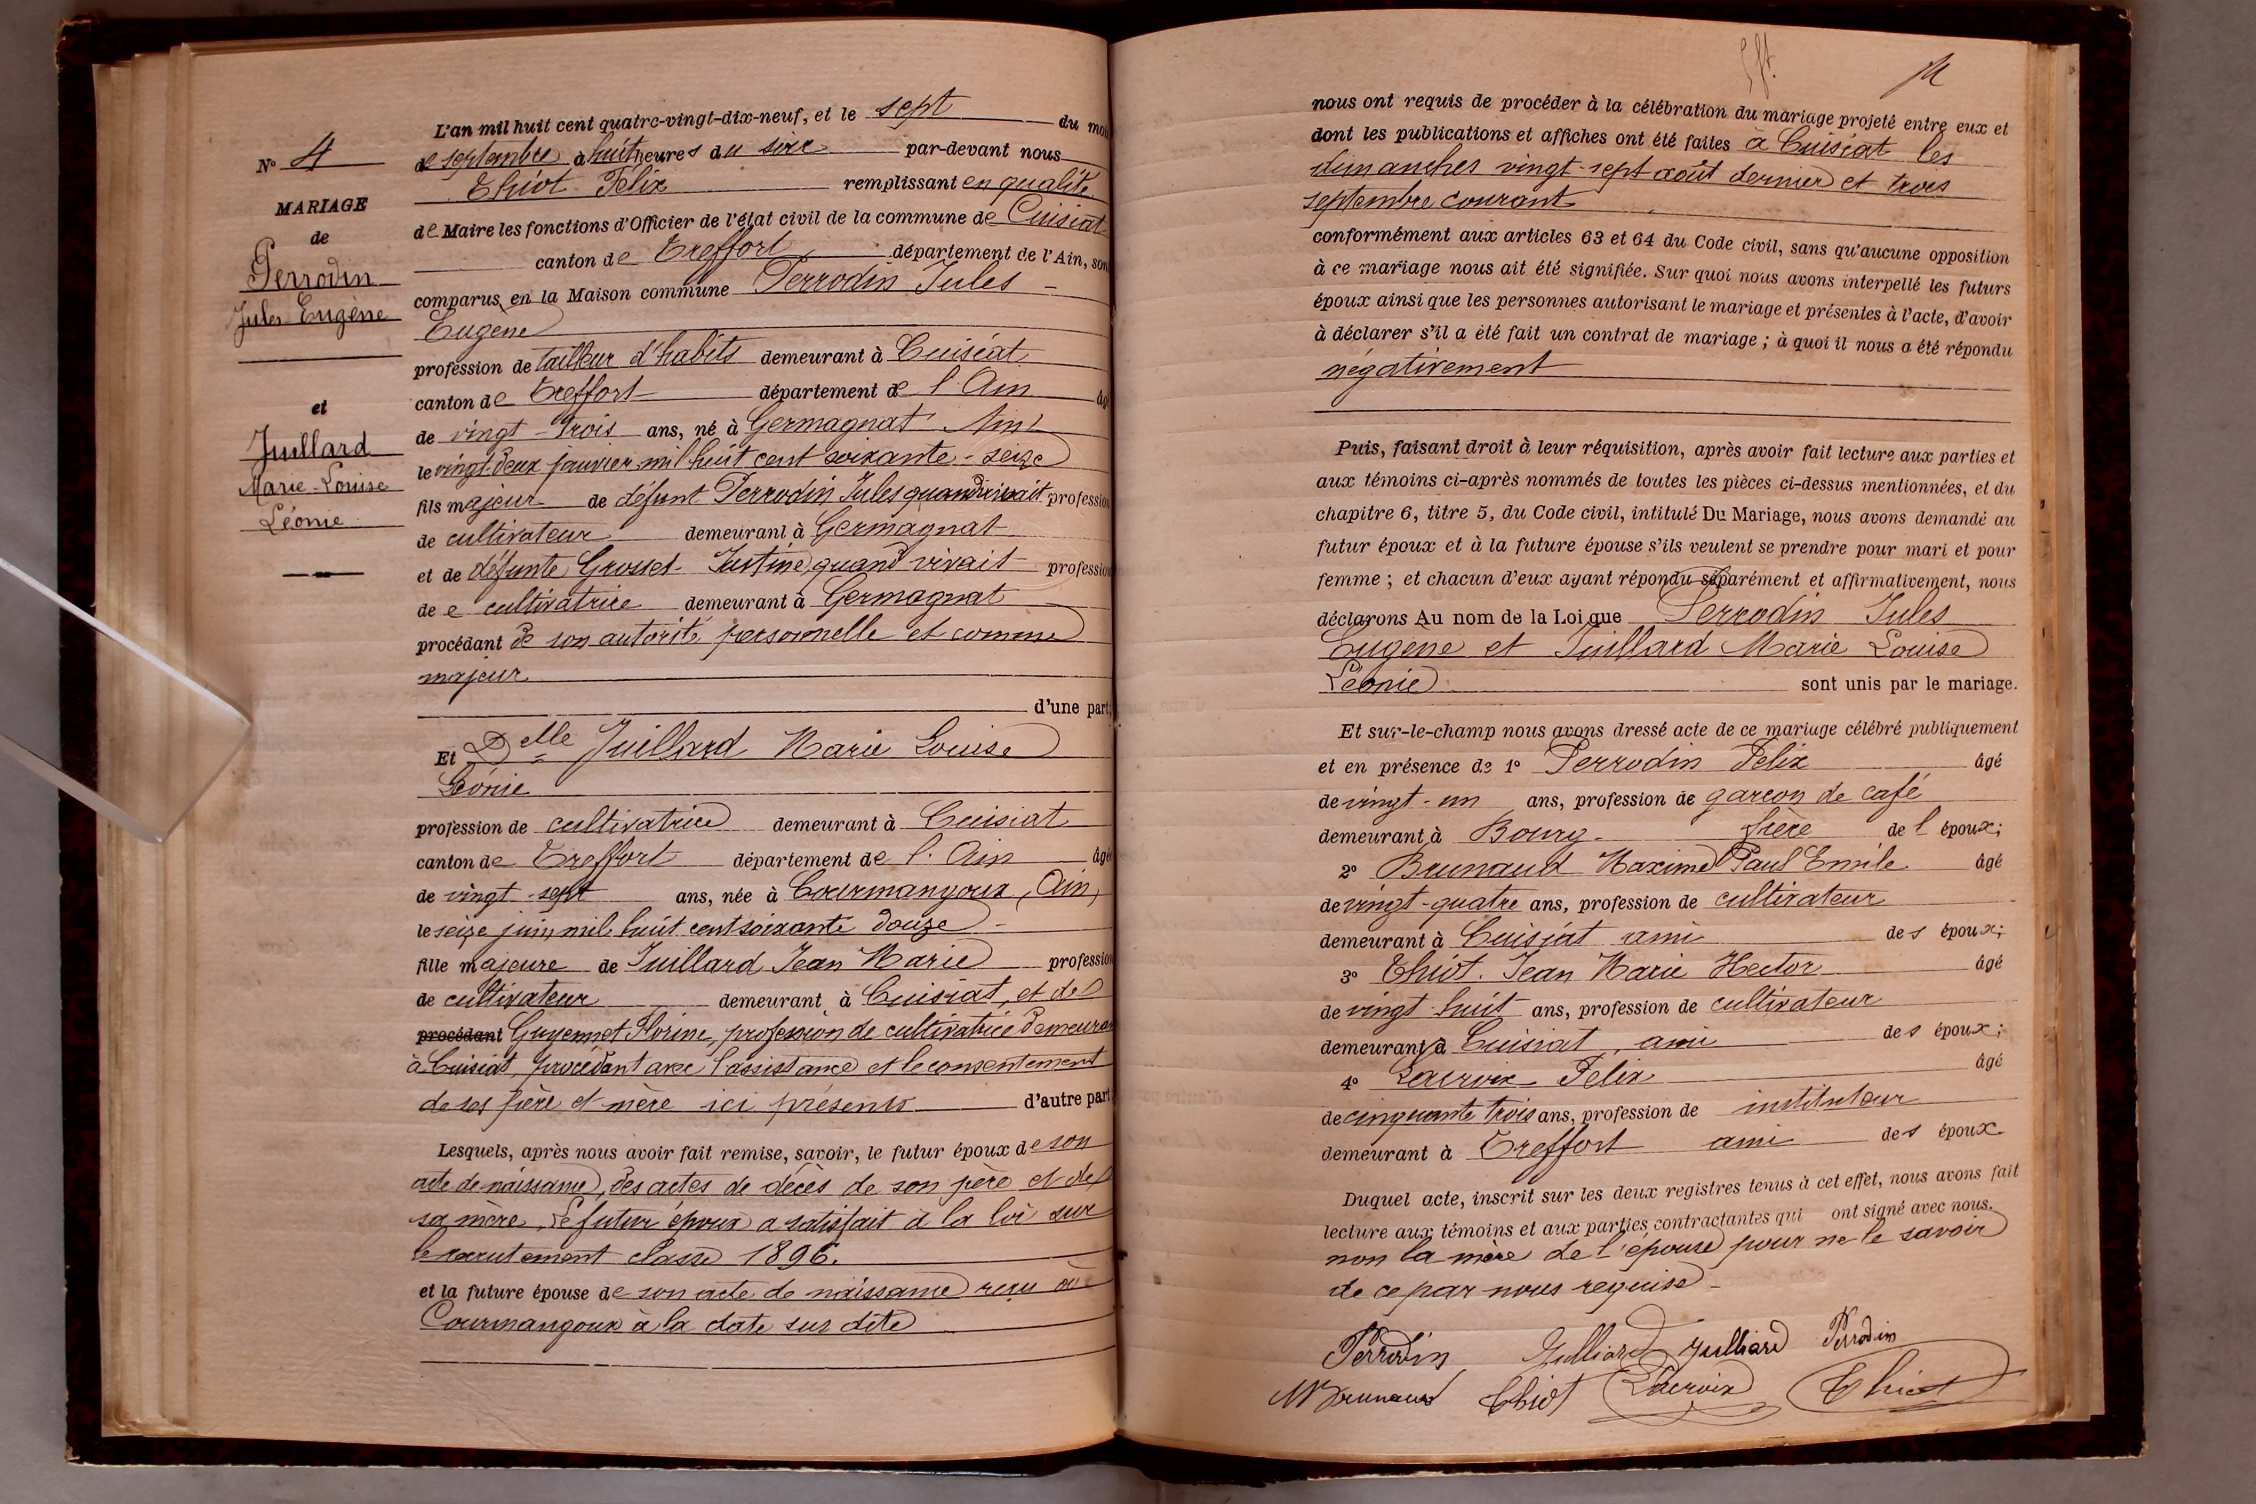 N° 4
MARIAGE
de
Perrodin
Jules Eugène
et
Juillard
Marie-Louise
Léonie
L'an mil huit cent quatre-vingt-dix-neuf, et le sept du mois
de septembre à huit heures du soir par-devant nous
Thiot Félix remplissant en qualité
de Maire les fonctions d'Officier de l'état civil de la commune de Cuisiat
canton de Treffort département de l'Ain, son
comparus, en la Maison commune Perrodin Jules
Eugène
profession de tailleur d'habits demeurant à Cuisiat
canton de Treffort département de l'Ain âgé
de vingt-trois ans, né à Germagnat Ain
le vingt-deux janvier mil huit cent soixante-seize
fils majeur de défunt Perrodin Jules quand vivait profession
de cultivateur demeurant à Germagnat
et de défunte Grosset Justine quand vivait profession
de e cultivatrice demeurant à Germagnat
procédant de son autorité personnelle et comme
majeur
d'une part;
Et Delle Juillard Marie Louise
Léonie
profession de cultivatrice demeurant à Cuisiat
canton de Treffort département de l'Ain âgé
de vingt-sept ans, née à Courmangoux (Ain)
le seize juin mil huit cent soixante douze
fille majeure de Juillard Jean Marie profession
de cultivateur demeurant à Cuisiat, et de
procédant Guyennet Florine, profession de cultivatrice demeurant
à Cuisiat, procédant avec l'assistance et le consentement
de ses père et mère ici présents d'autre part
Lesquels, après nous avoir fait remise, savoir, le futur époux de son
acte de naissance, des actes de décès de son père et de
sa mère. Le futur époux a satisfait à la loi sur
le recrutement classe 1896.
et la future épouse de son acte de naissance reçu à
Courmangoux à la date sus dite
nous ont requis de procéder à la célébration du mariage projeté entre eux et
dont les publications et affiches ont été faites à Cuisiat les
dimanches vingt-sept août dernier et trois
septembre courant
conformément aux articles 63 et 64 du Code civil, sans qu'aucune opposition
à ce mariage nous ait été signifiée. Sur quoi nous avons interpellé les futurs
époux ainsi que les personnes autorisant le mariage et présentes à l'acte, d'avoir
à déclarer s'il a été fait un contrat de mariage ; à quoi il nous a été répondu
négativement
Puis, faisant droit à leur réquisition, après avoir fait lecture aux parties et
aux témoins ci-après nommés de toutes les pièces ci-dessus mentionnées, et du
chapitre 6, titre 5, du Code civil, intitulé Du Mariage, nous avons demandé au
futur époux et à la future épouse s'ils veulent se prendre pour mari et pour
femme ; et chacun d'eux ayant répondu séparément et affirmativement, nous
déclarons Au nom de la Loi que Perrodin Jules
Eugène et Juillard Marie Louise
Léonie sont unis par le mariage.
Et sur-le-champ nous avons dressé acte de ce mariage célébré publiquement
et en présence de 1° Perrodin Félix âgé
de vingt-un ans, profession de garçon de café
demeurant à Bourg frère de l'époux;
2° Brunaud Maxime Paul Emile âgé
de vingt-quatre ans, profession de cultivateur
demeurant à Cuisiat ami des époux;
3° Thiot Jean Marie Hector âgé
de vingt-huit ans, profession de cultivateur
demeurant à Cuisiat, ami des époux;
4° Lacroix Félix âgé
de cinquante trois ans, profession de instituteur
demeurant à Treffort ami des époux.
Duquel acte, inscrit sur les deux registres tenus à cet effet, nous avons fait
lecture aux témoins et aux parties contractantes qui ont signé avec nous.
non la mère de l'épouse pour ne le savoir
de ce par nous requise
Perrodin Juilliard Juilliard Perrodin
M Brunaud Thiot Lacroix Thiot